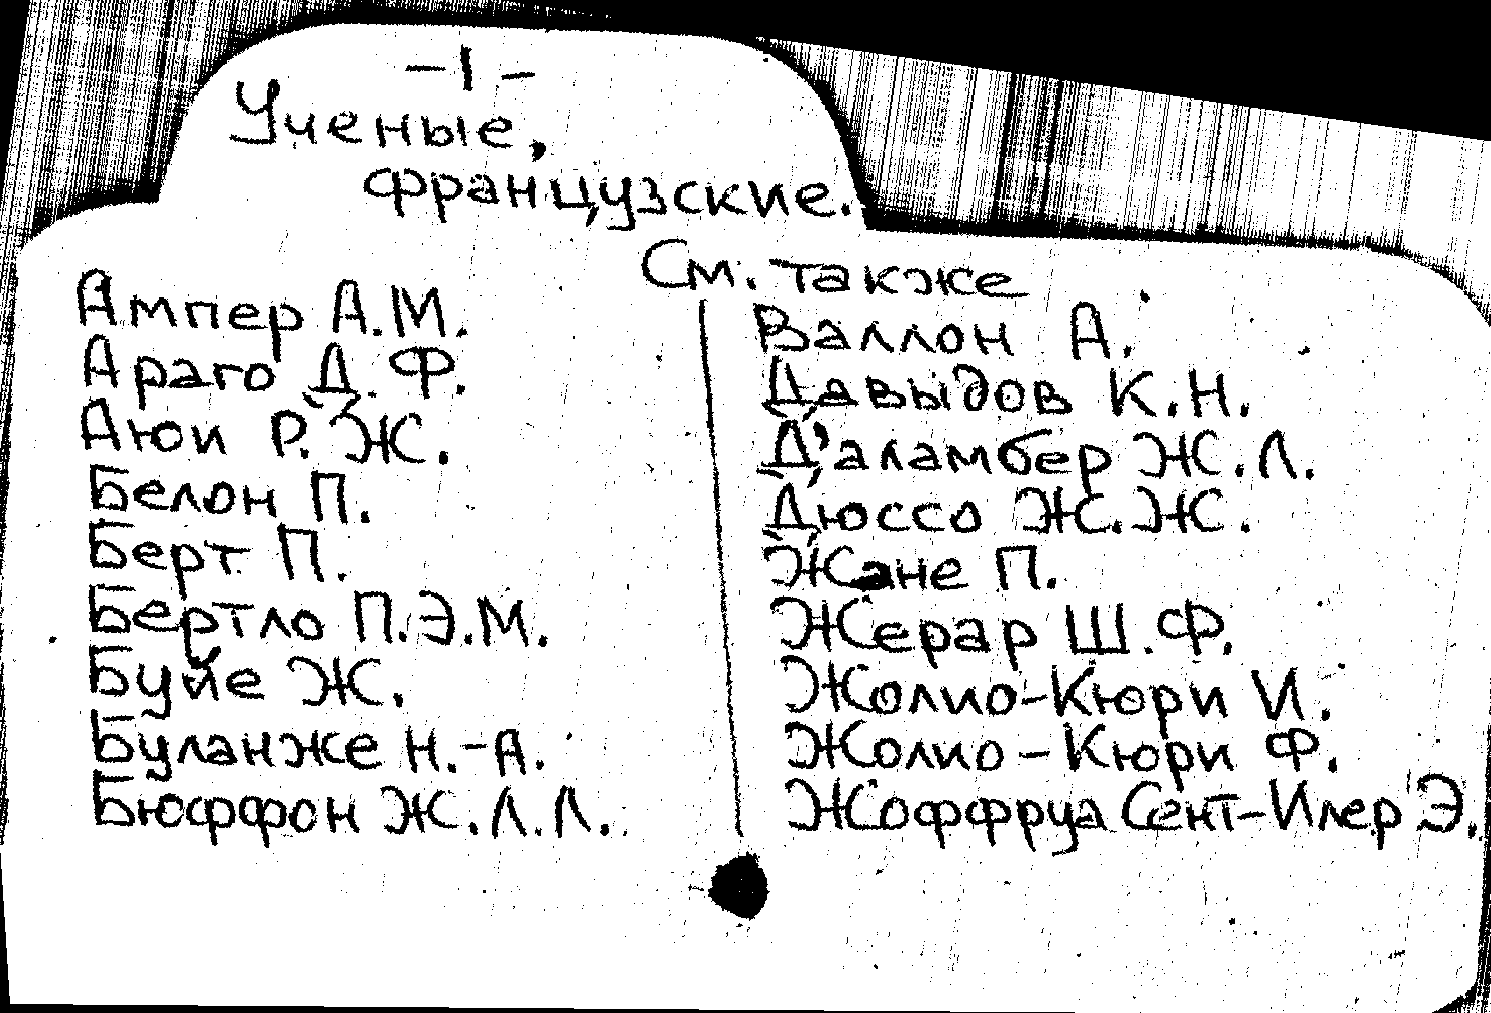 - 1 -
Ученые,
французские.
См. также
Ампер А.М.
Араго Д.Ф.
Аюи Р.Ж.
Белон П.
Берт П.
Бертло П.Э.М.
Буйе Ж.
Буланже Н.-А.
Бюффон Ж.Л.Л.
Валлон А.
Давыдов К.Н.
Д'аламбер Ж.Л.
Дюссо Ж.Ж.
Жане П.
Жерар Ш.Ф.
Жолио-Кюри И.
Жолио-Кюри Ф.
Жоффруа Сент-Илер Э.